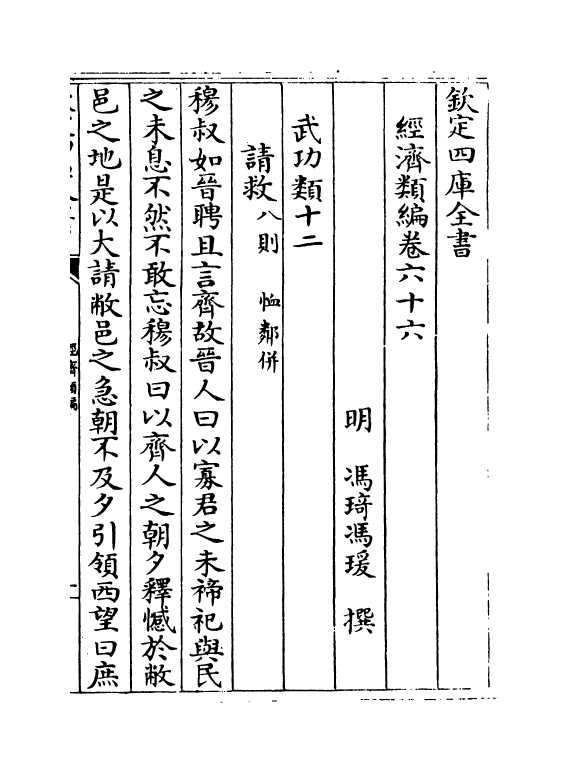 欽定四庫全書
經濟類編卷六十六
明 馮琦馮瑗 撰
武功類十二
請救八則 恤鄰併
穆叔如晉聘且言齊故晉人曰以寡君之未禘祀與民
之未息不然不敢忘穆叔曰以齊人之朝夕釋憾於敝
邑之地是以大請敝邑之急朝不及夕引領西望曰庶
經濟類編
一